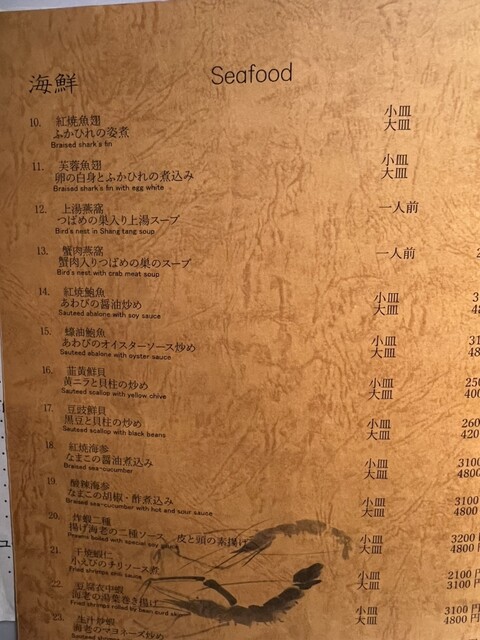 海鮮 Seafood
10. 紅焼魚翅 小皿
ふかひれの姿煮 大皿
Braised shark's fin
11. 芙蓉魚翅 小皿
卵の白身とふかひれの煮込み 大皿
Braised shark's fin with egg white
12. 上湯燕窩 一人前
つばめの巣入り上湯スープ
Bird's nest in Shang tang soup
13. 蟹肉燕窩 一人前
蟹肉入りつばめの巣のスープ
Bird's nest with crab meat soup
14. 紅焼鮑魚 小皿
あわびの醤油炒め 大皿
Sauteed abalone with soy sauce
15. 蠔油鮑魚 小皿
あわびのオイスターソース炒め 大皿
Sauteed abalone with oyster sauce
16. 韮黄鮮貝 小皿
黄ニラと貝柱の炒め 大皿
Sauteed scallop with yellow chive
17. 豆豉鮮貝 小皿
黒豆と貝柱の炒め 大皿
Sauteed scallop with black beans
18. 紅焼海参 小皿 3100
なまこの醤油煮込み 大皿 4800
Braised sea-cucumber
19. 酸辣海参 小皿 3100
なまこの胡椒・酢煮込み 大皿 4800
Braised sea-cucumber with hot and sour sauce
20. 炸蝦二種 小皿 3200
揚げ海老の二種ソース 皮と頭の素揚げ 大皿 4800円
21. 干焼蝦仁 小皿 2100円
小えびのチリソース煮 大皿 3100円
Fried shrimps
22. 豆腐衣中蝦 小皿 3100円
海老の湯葉巻き揚げ 大皿 4800円
Fried shrimps rolled by bean curd
23. 生汁炒蝦
海老のマヨネーズ炒め